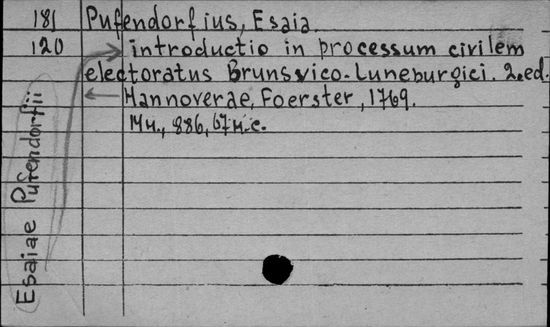 181 Pufendorfius, Esaia.
120 introductio in processum civilem
electoratus Brunsvico-Luneburgici. 2.ed.
Hannoverae, Foerster, 1769.
14н., 886, 67н.с.
Esaiae Pufendorfii